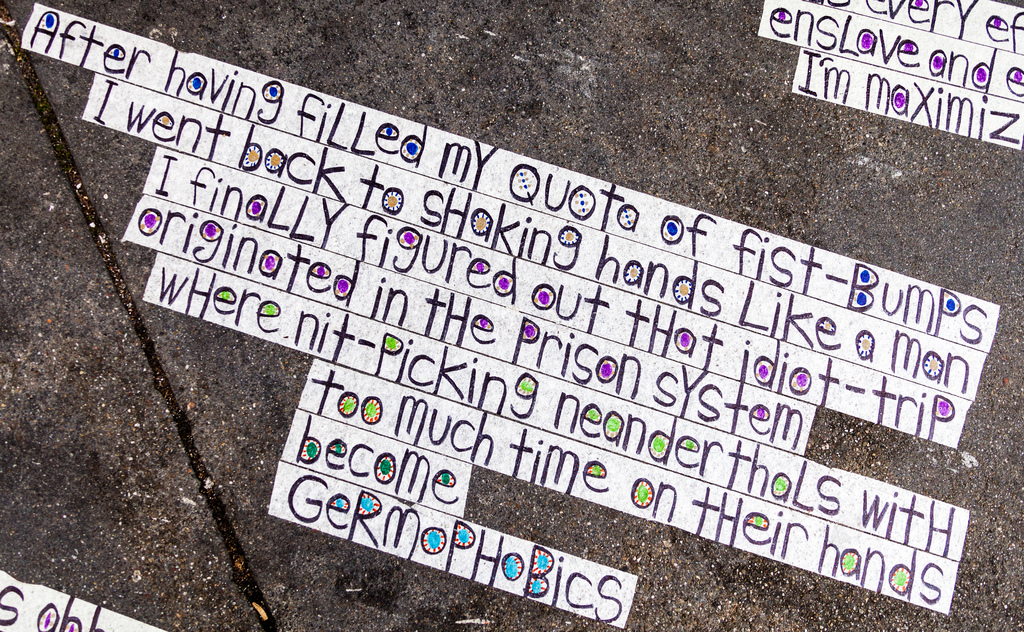 After having fiLLed mY Quota of fist-BumPs
I went back to sHaking hands Like a man
I finaLLY figured out tHat idiot-triP
originated in tHe Prison sYstem
wHere nit-Picking neanderthaLs witH
too much time on tHeir hands
become
GeRmoPHoBics
every
ensLave and
I'm maximiz